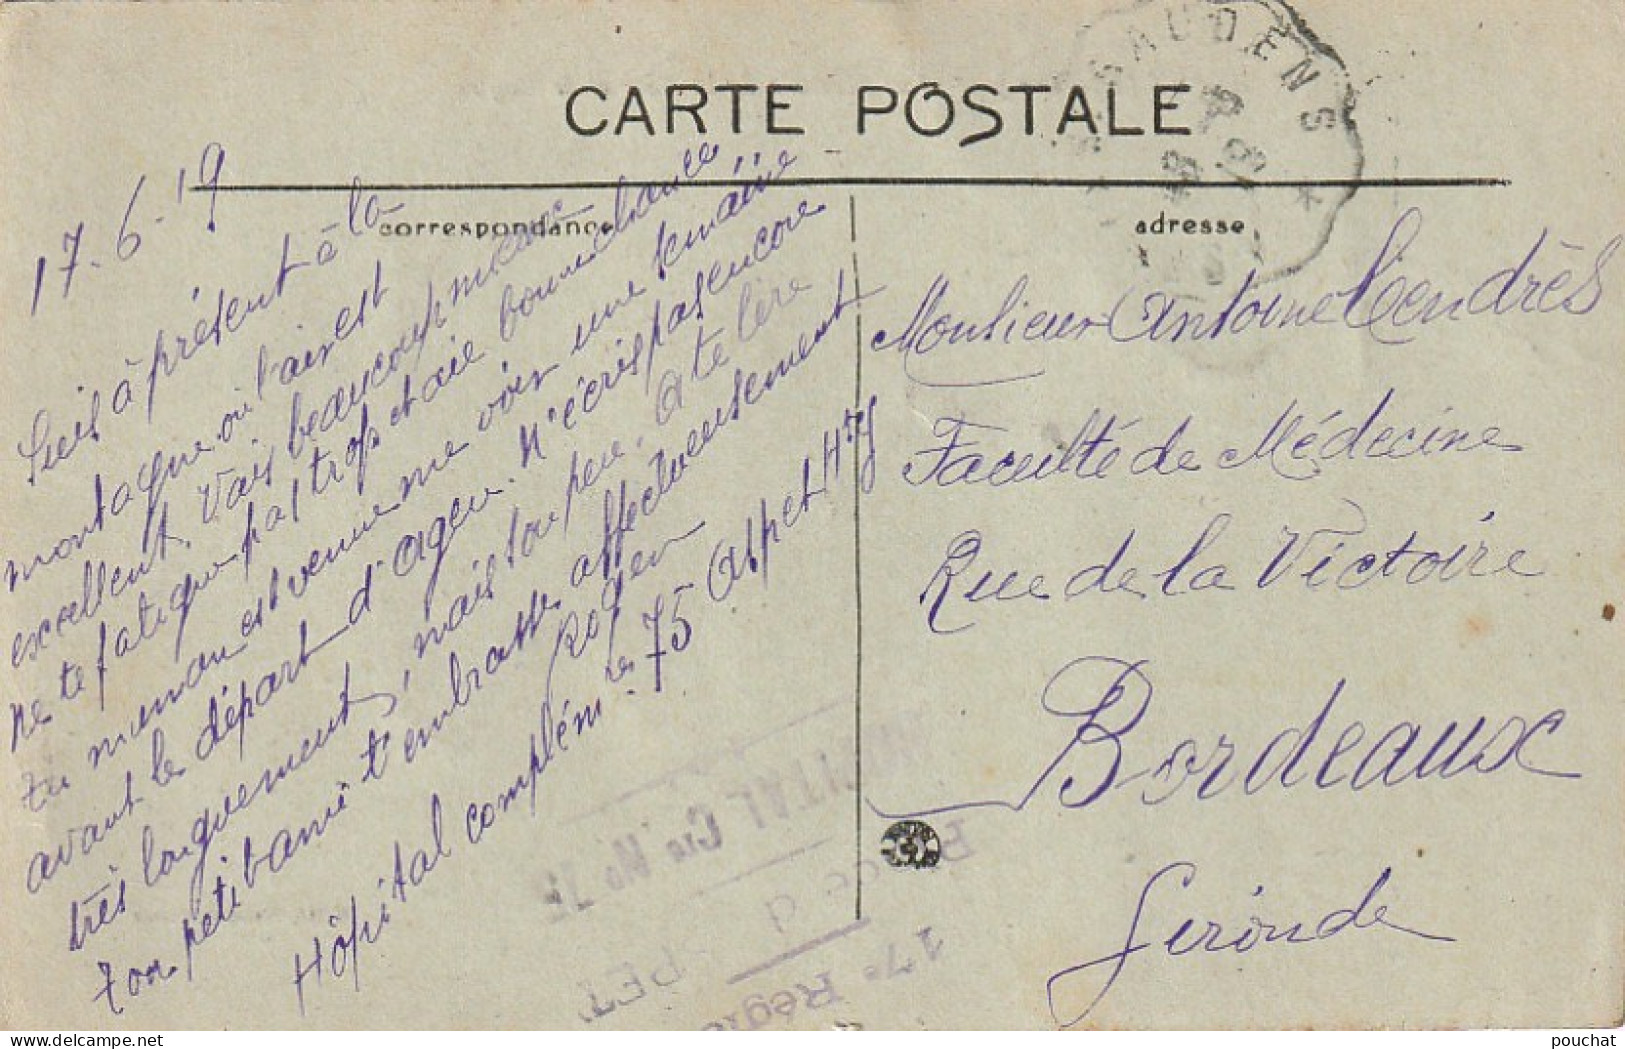 CARTE POSTALE
correspondance
adresse
17-6-19
Suis à présent à la
montagne où l'air est
excellent. Vais beaucoup mieux
ne te fatigue pas trop et aie bonne chance
tu maman est venue me voir une semaine
avant le départ d'Agen. N'écris pas encore
très longuement, mais ton père. A te lire
ton petit ami t'embrasse affectueusement
Roger
Hôpital complémre 75 Aspet Hte
Monsieur Antoine Cendrès
Faculté de Médecine
Rue de la Victoire
Bordeaux
Gironde
GAUDENS
HOPITAL Cre No 75
Place d
17e Régio
pouchat